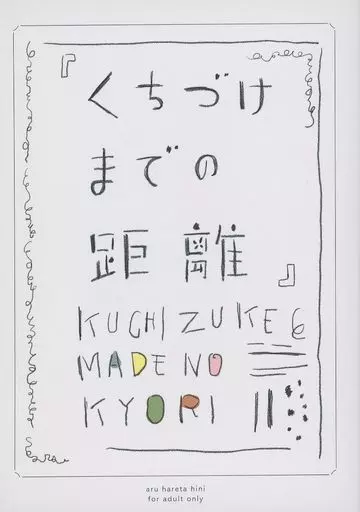 『くちづけ
までの
距離』
KUCHIZUKE
MADE NO
KYORI
aru hareta hini
for adult only